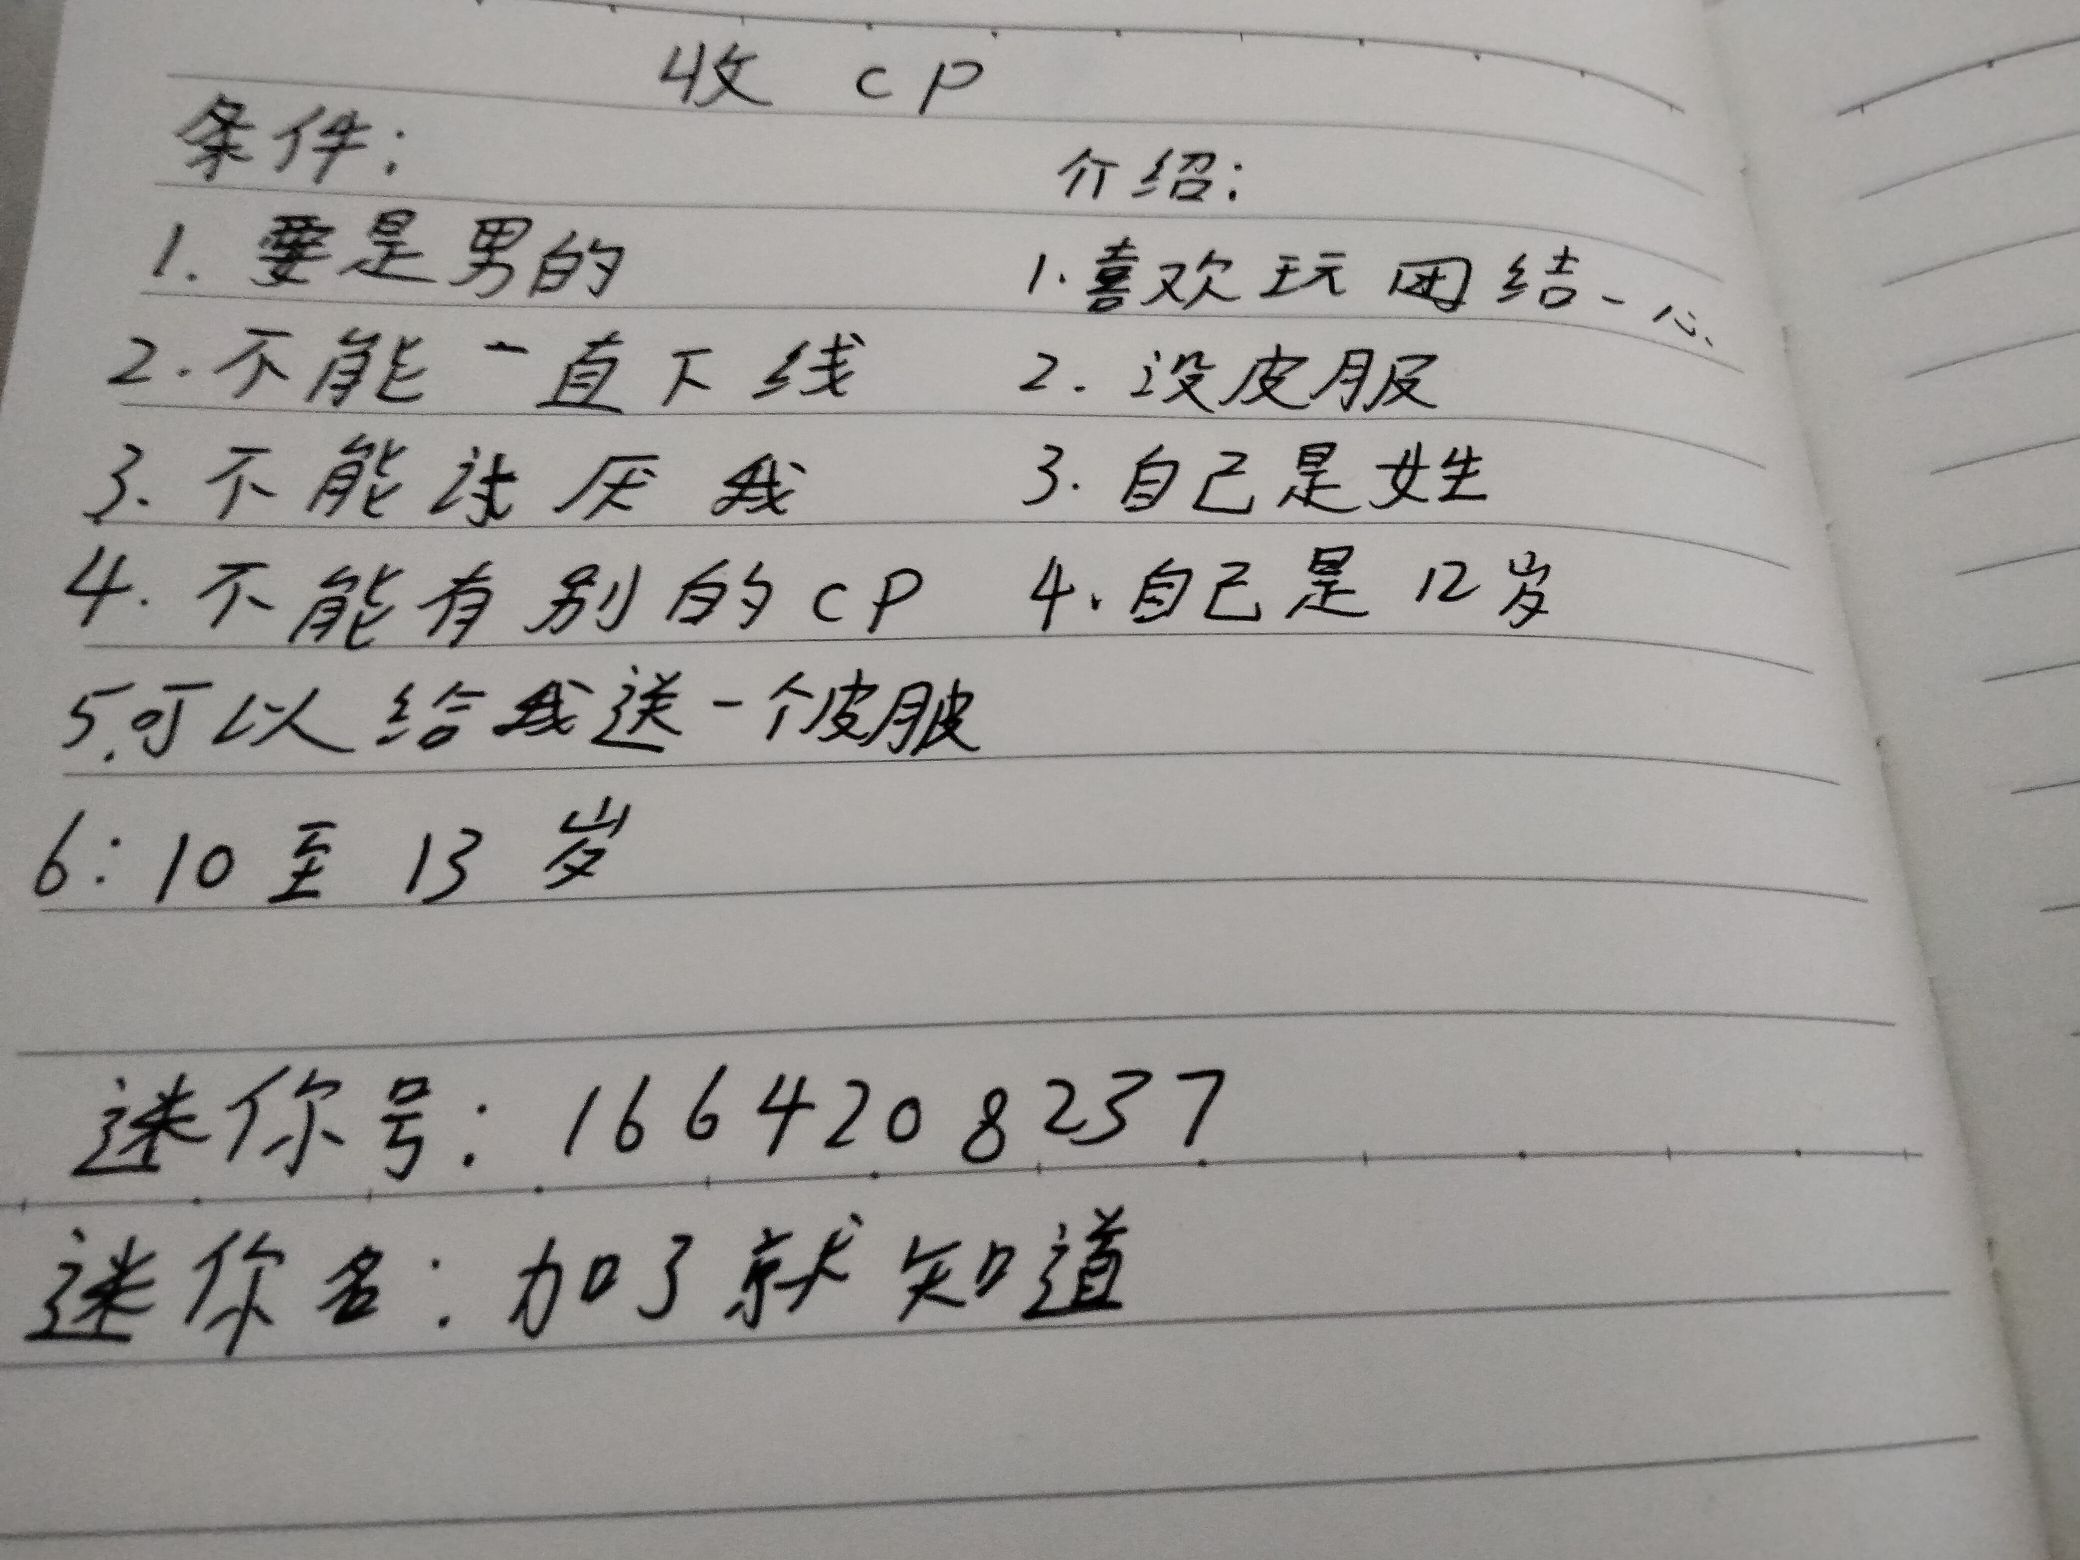 收 cp
条件：
介绍：
1. 要是男的
1.喜欢玩团结一心
2.不能一直下线
2. 没皮服
3. 不能讨厌我
3. 自己是女生
4. 不能有别的cp
4、自己是 12岁
5.可以给我送一个皮肤
6：10 至 13 岁
迷你号：1664208237
迷你名：加了就知道